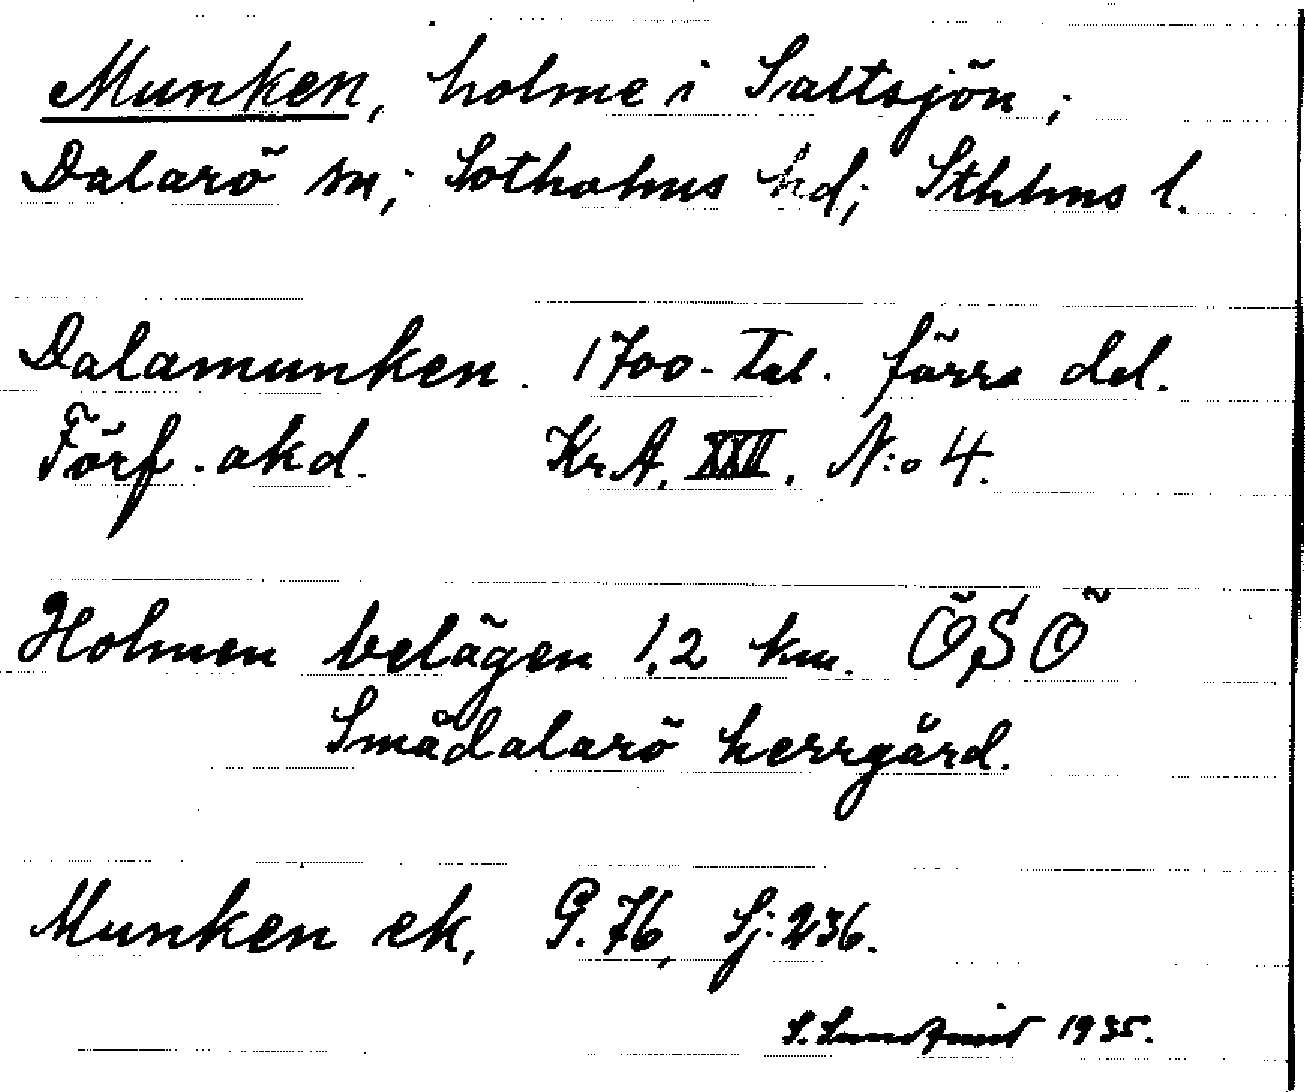 Munken, holme i Saltsjön;
Dalarö sn; Sotholms hd; Sthlms l.
Dalamunken. 1700-Tal. förra del.
Förf. akd. Kr.A. XXII. N:o 4.
Holmen belägen 1,2 km. ÖSÖ
Smådalarö herrgård.
Munken ek, G. 76, Sj: 236.
S. Lundqvist 1935.